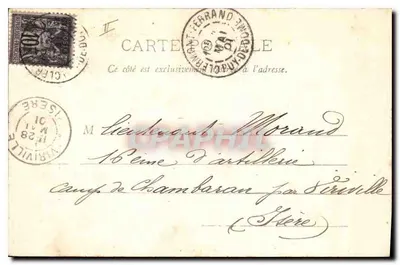 CARTE POSTALE
Ce côté est exclusivement réservé à l'adresse.
CLERMONT-FERRAND
PUY-DE-DOME
MAI
01
VIRIVILLE
ISERE
28
MAI
01
M Lieutenant Morand
16eme d'artillerie
camp de Chambaran par Viriville
(Isère)